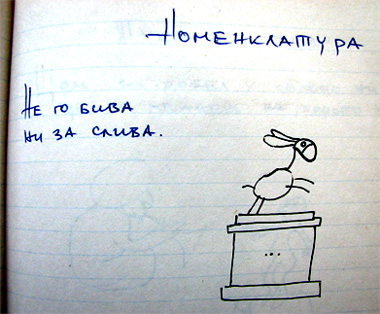 Номенклатура
Не го бива
ни за слива.
...